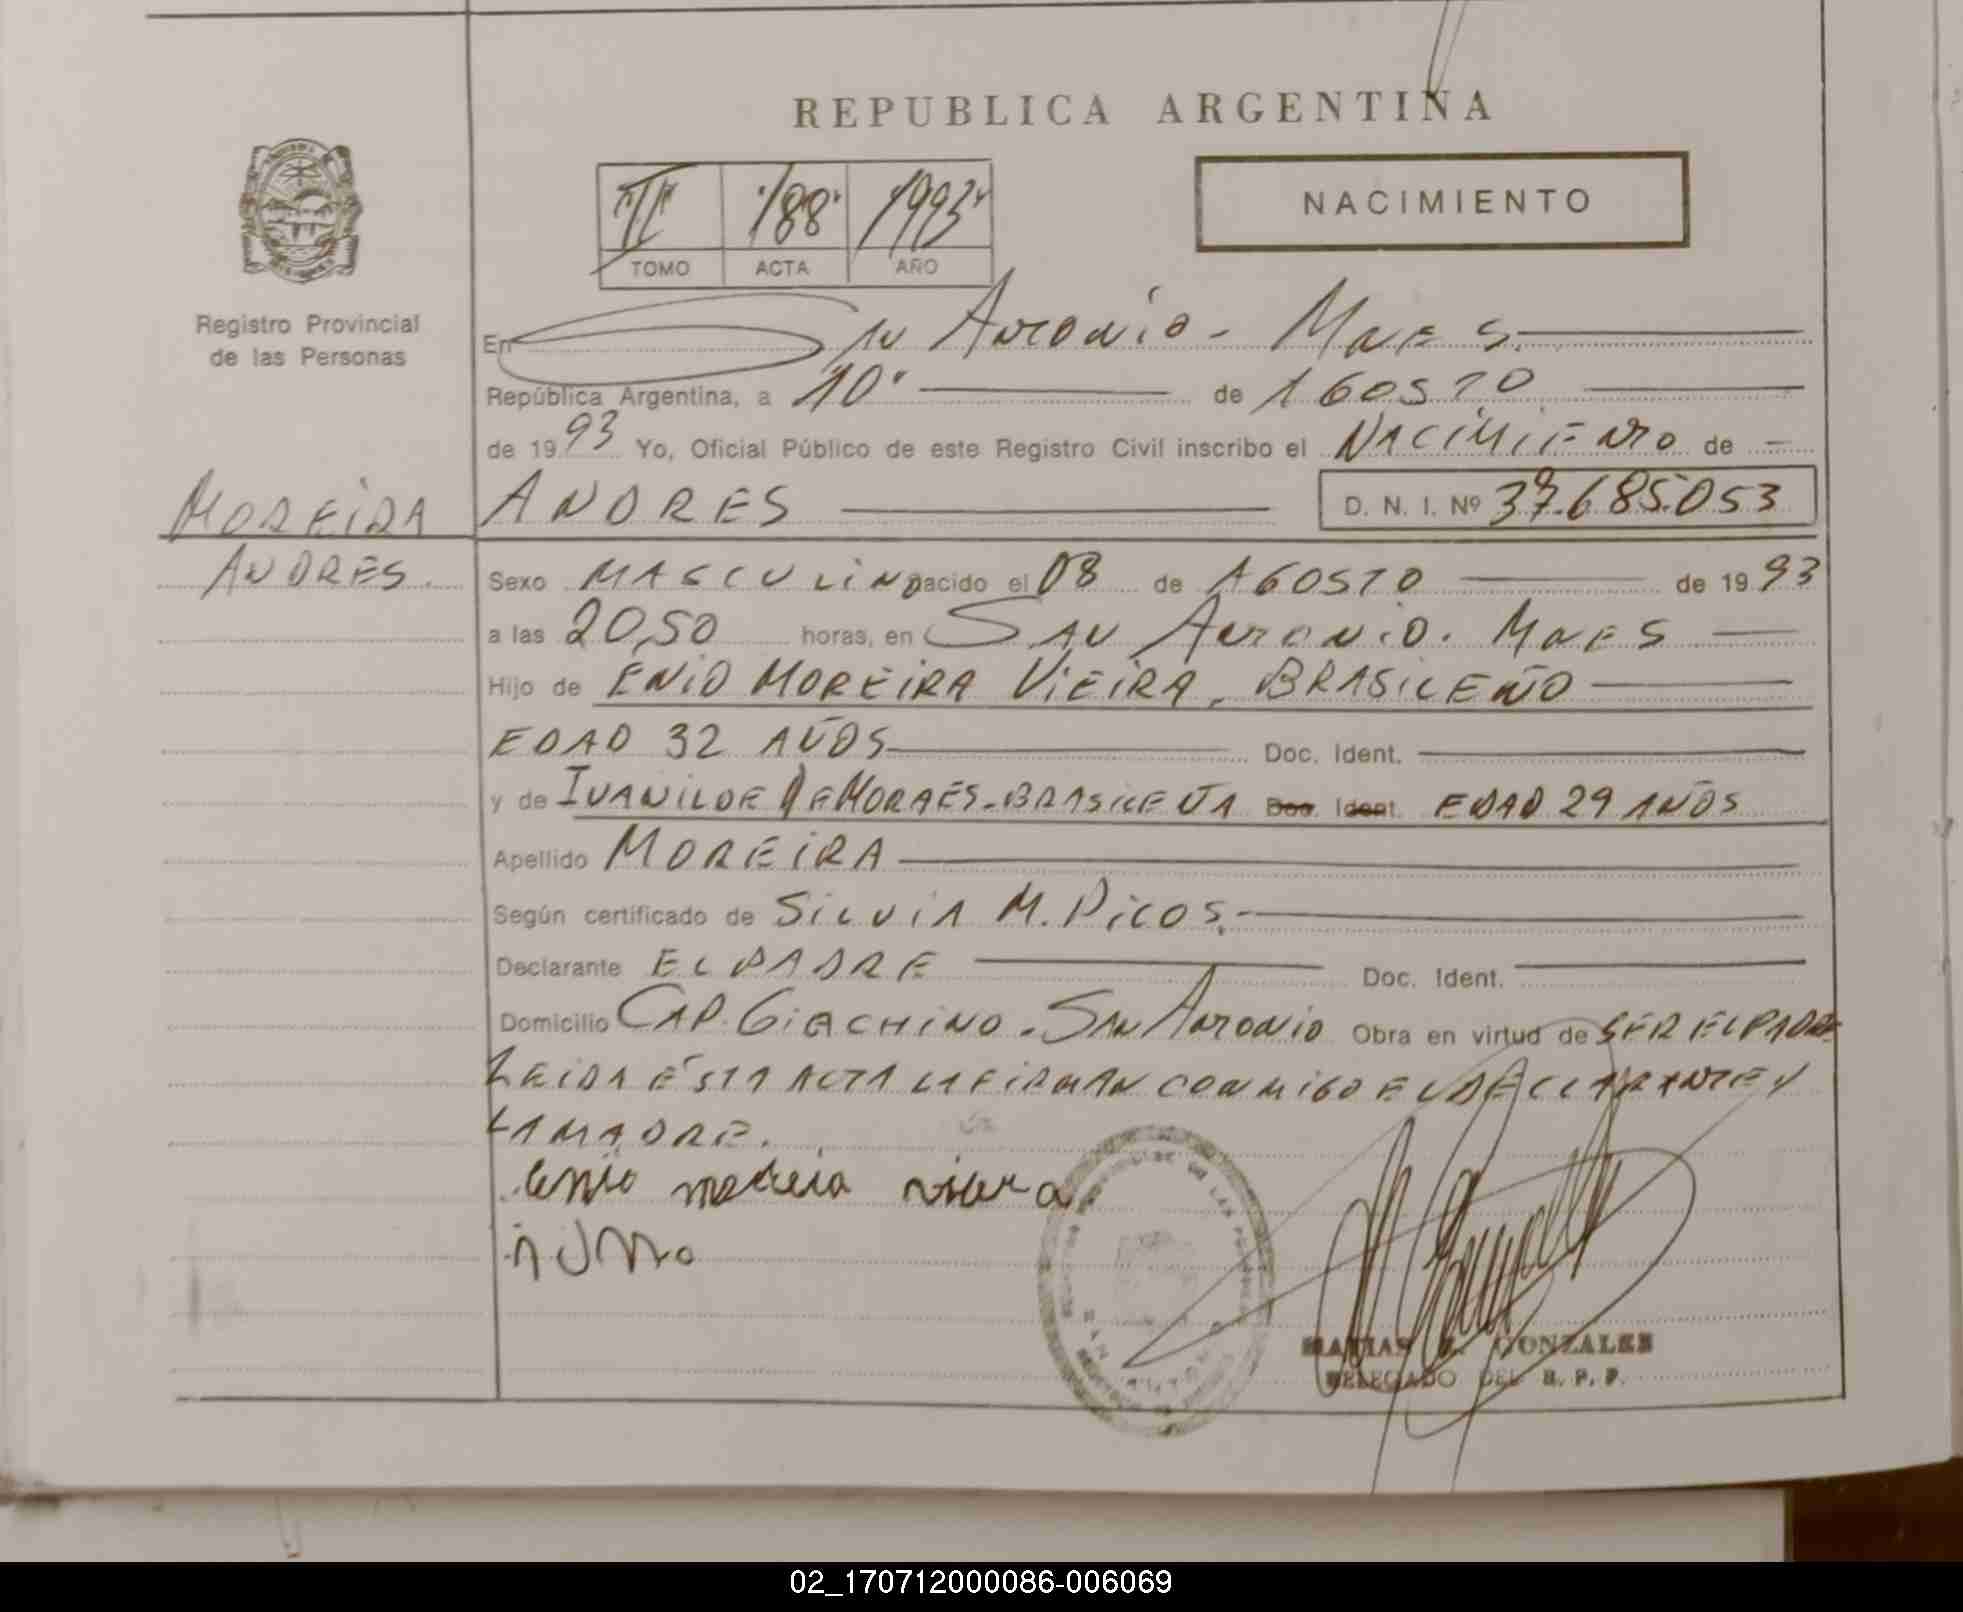 REPUBLICA ARGENTINA
NACIMIENTO
II 188 1993
TOMO ACTA AÑO
Registro Provincial
de las Personas
En San Antonio - Mnes.
República Argentina, a 10 de AGOSTO
de 1993 Yo, Oficial Público de este Registro Civil inscribo el NACIMIENTO de
MOREIRA
ANDRES
ANDRES D. N. I. Nº 37.685.053
Sexo MASCULINO nacido el 08 de AGOSTO de 1993
a las 20,50 horas, en SAN ANTONIO. MNES
Hijo de ENIO MOREIRA VIEIRA, BRASILEÑO
EDAD 32 AÑOS Doc. Ident.
y de IVANILDE DE MORAES - BRASILEÑA Doc. Ident. EDAD 29 AÑOS
Apellido MOREIRA
Según certificado de SILVIA M. PICOS.
Declarante EL PADRE Doc. Ident.
Domicilio CAP. GIACHINO - SAN ANTONIO Obra en virtud de SER EL PADRE
LEIDA ÉSTA ACTA LA FIRMAN CONMIGO EL DECLARANTE Y
LA MADRE.
enio moreira vieira
MATIAS GONZALES
DELEGADO DEL R. P. P.
02_170712000086-006069